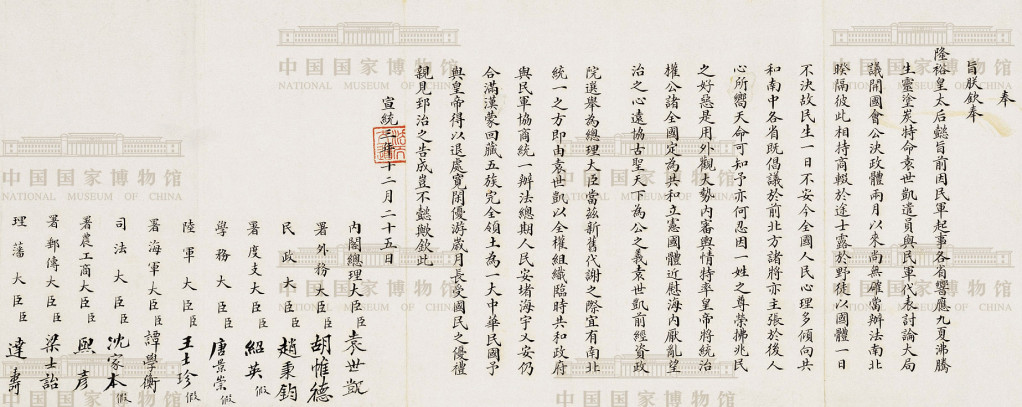 奉
旨朕欽奉
隆裕皇太后懿旨前因民軍起事各省響應九夏沸騰
生靈塗炭特命袁世凱遣員與民軍代表討論大局
議開國會公決政體兩月以來尚無確當辦法南北
暌隔彼此相持商輟於途士露於野徒以國體一日
不決故民生一日不安今全國人民心理多傾向共
和南中各省既倡議於前北方諸將亦主張於後人
心所嚮天命可知予亦何忍因一姓之尊榮拂兆民
之好惡是用外觀大勢內審輿情特率皇帝將統治
權公諸全國定為共和立憲國體近慰海內厭亂望
治之心遠協古聖天下為公之義袁世凱前經資政
院選舉為總理大臣當茲新舊代謝之際宜有南北
統一之方即由袁世凱以全權組織臨時共和政府
與民軍協商統一辦法總期人民安堵海宇乂安仍
合滿漢蒙回藏五族完全領土為一大中華民國予
與皇帝得以退處寬閑優游歲月長受國民之優禮
親見郅治之告成豈不懿歟欽此
宣統三年十二月二十五日
內閣總理大臣臣袁世凱
署外務大臣臣胡惟德
民政大臣臣趙秉鈞
署度支大臣臣紹英假
學務大臣臣唐景崇假
陸軍大臣臣王士珍假
署海軍大臣臣譚學衡
司法大臣臣沈家本假
署農工商大臣臣熙彥
署郵傳大臣臣梁士詒
理藩大臣臣達壽
中国国家博物馆
NATIONAL MUSEUM OF CHINA
中国国家博物馆
NATIONAL MUSEUM OF CHINA
中国国家博物馆
NATIONAL MUSEUM OF CHINA
中国国家博物馆
NATIONAL MUSEUM OF CHINA
中国国家博物馆
NATIONAL MUSEUM OF CHINA
中国国家博物馆
NATIONAL MUSEUM OF CHINA